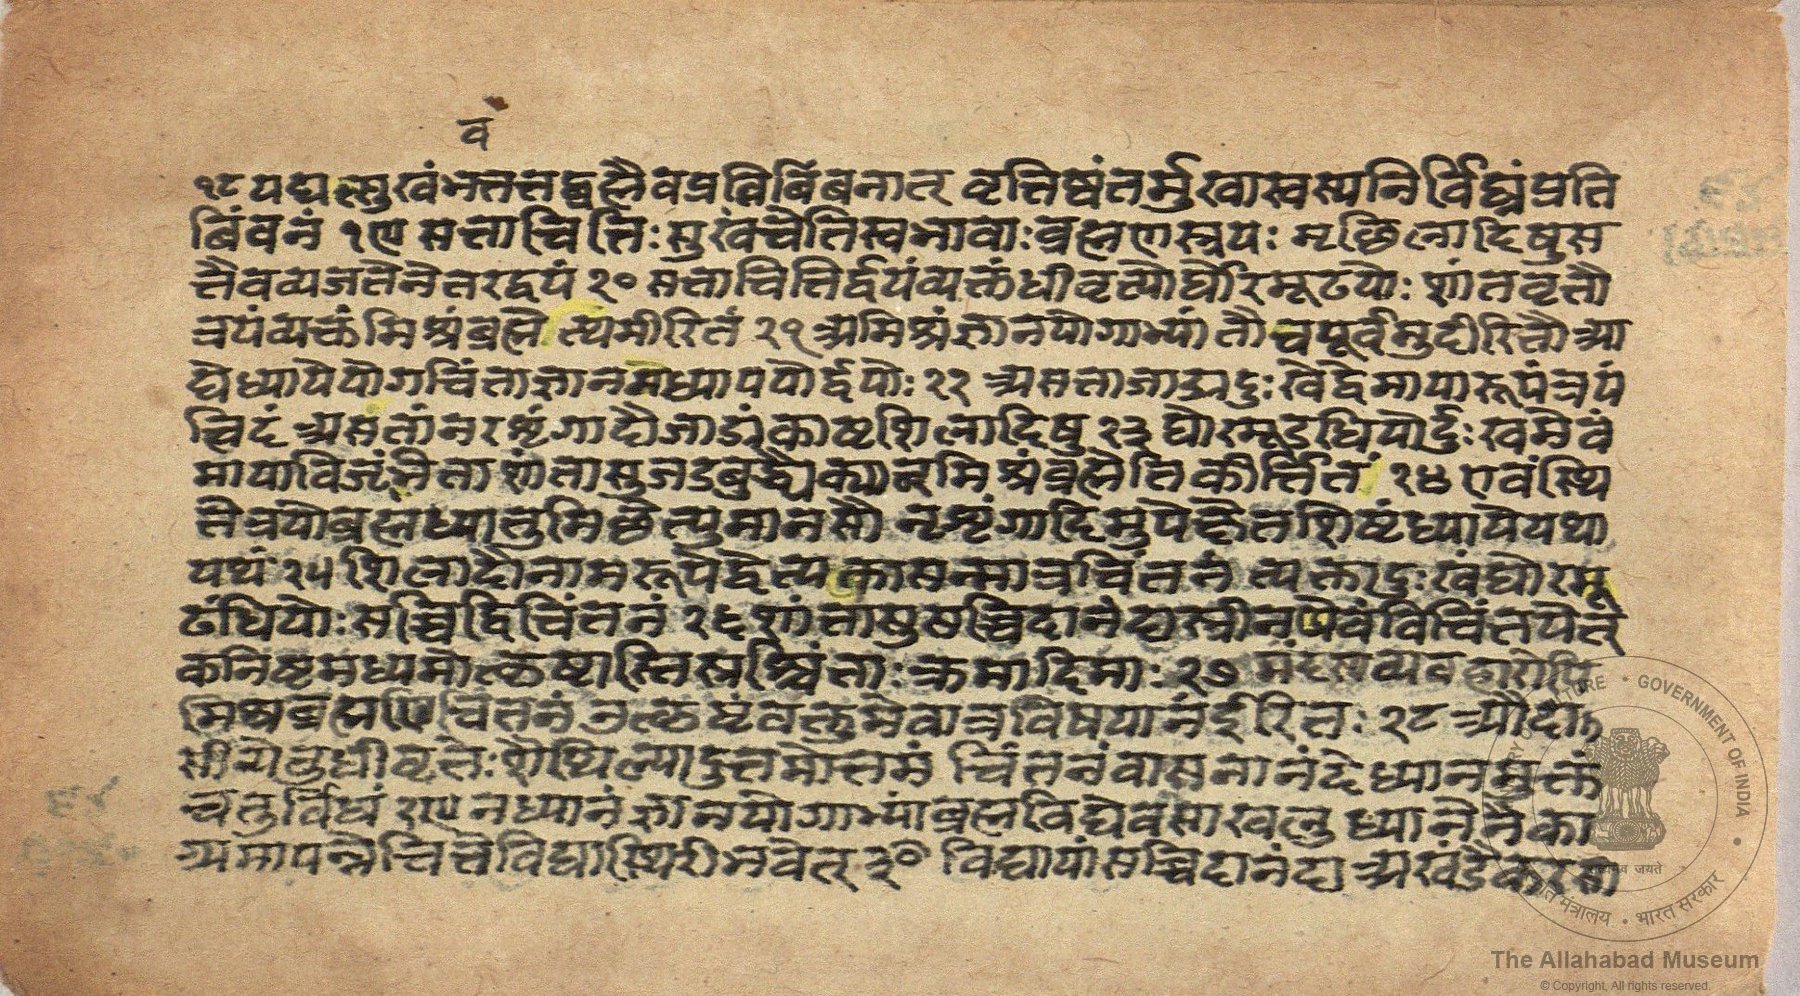 व
१८ यद्यत्सुखं भतत्तद्ब्रह्मैव प्रतिबिंबनात् वृत्तिष्वंतर्मुखास्वस्यनिर्विघ्नंप्रति
बिंबनं १९ सत्ताचित्तिः सुखंचेतिस्वभावाः ब्रह्मणस्त्रयः मृछिलादिषुस
त्तैवव्यजतेनेतरद्वयं २० सत्ताचित्तिर्द्वयंव्यक्तंधीवृत्योर्घोरमूढयोः शांतवृत्तौ
त्रयंव्यक्तंमिश्रंब्रह्मेत्थमीरितं २१ अमिश्रंज्ञानयोगाभ्यां तौचपूर्वमुदीरितौ आ
द्येध्यायेयोगचिंताज्ञानमध्याययोर्द्वयोः २२ असत्ताजाड्यदुःखेद्वेमायारूपंत्रयं
त्विदं असत्तांनरशृंगादौजाड्यंकाष्टशिलादिषु २३ घोरमूडधियोर्दुःखमेवं
मायाविजृंभिता शांतासुजडबुद्ध्यैक्यान्मिश्रंब्रह्मेतिकीर्त्तितं २४ एवंस्थि
तेत्रयोब्रह्मध्यातुमिछेत्पुमानसौ नृशृंगादिमुपेक्षेतशिष्टंध्यायेयथा
यथं २५ शिलादौनामरूपेद्वेत्यक्त्वासन्मात्रचिंतनं त्यक्त्वादुःखंघोरमू
ढंधियोः सच्चिद्विचिंतनं २६ शांतासुसच्चिदानंदास्त्रीनप्येवंविचिंतयेत्
कनिष्टमध्यमोत्कृष्टास्तिस्रश्चिंताः क्रमादिमाः २७ मंदस्यव्यवहारेपि
मिश्रब्रह्मणिचिंतनं उत्कृष्टंवक्तुमेवात्रविषयानंदईरितः २८ औदा
सीन्येतुधीवृत्तेः शैथिल्यादुत्तमोत्तमं चिंतनंवासनानंदेध्यानमुक्तं
चतुर्विधं २९ नध्यानंज्ञानयोगाभ्यांब्रह्मविद्येवसाखलु ध्यानेनैका
ग्र्यमापन्नेचित्तेविद्यास्थिरीभवेत् ३० विद्यायांसच्चिदानंदा अखंडैकरसा
The Allahabad Museum
© Copyright, All rights reserved.
GOVERNMENT OF INDIA
सत्यमेव जयते
मंत्रालय • भारत सरकार